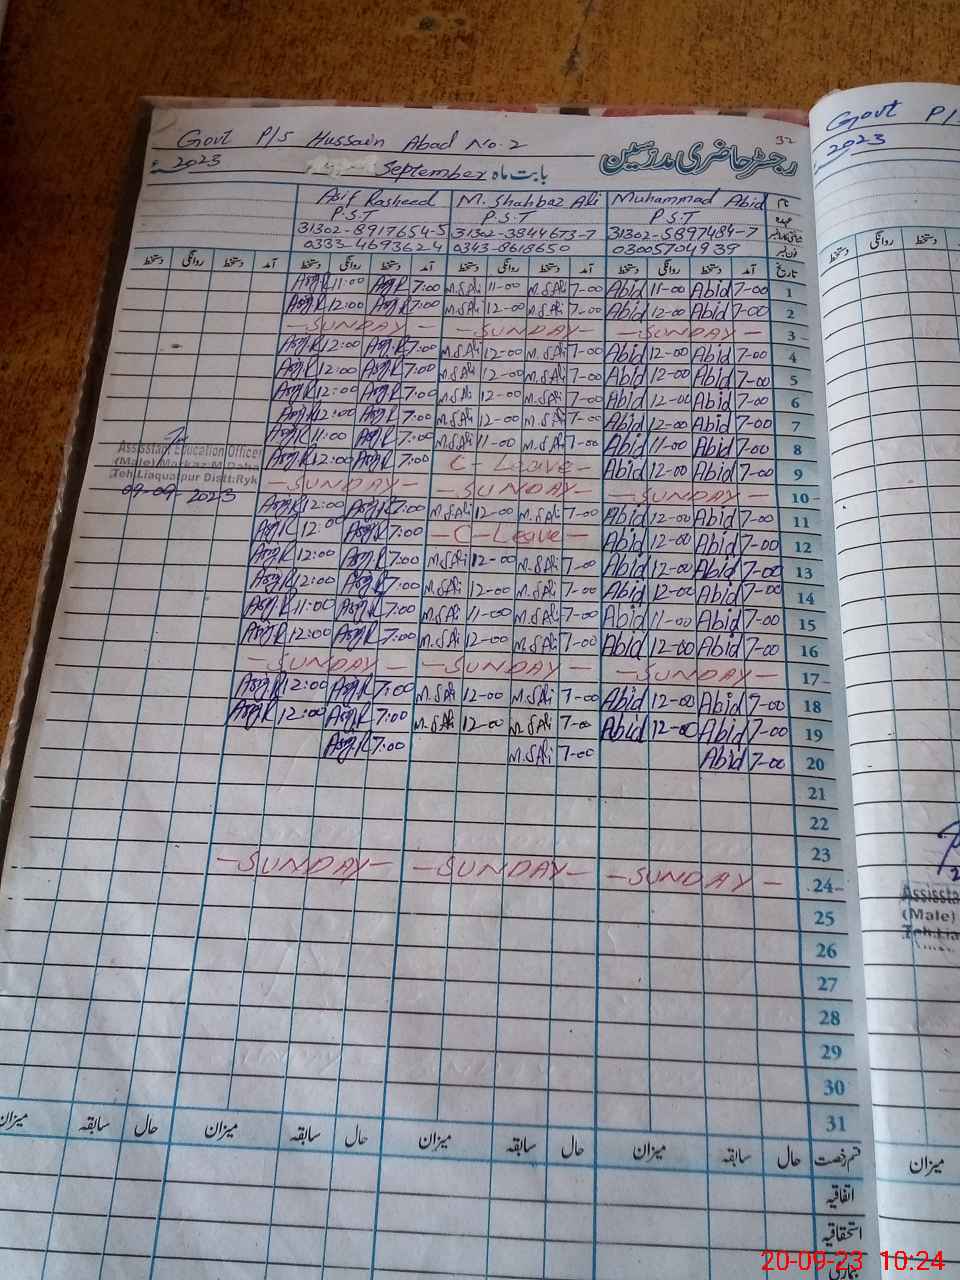 Govt P/S Hussain Abad No. 2
32
رجسٹر حاضری مدرسین
بابت ماہ September 2023ء
نام Muhammad Abid M. Shahbaz Ali Asif Rasheed
عہدہ P.S.T P.S.T P.S.T
31302-5897484-7 31302-3844673-7 31302-8917654-5
03005704939 0343-8618650 0333-4693624
تاریخ آمد دستخط روانگی دستخط آمد دستخط روانگی دستخط آمد دستخط روانگی دستخط آمد دستخط روانگی دستخط
1 7-00 Abid 11-00 Abid 7-00 M.SAli 11-00 M.SAli 7:00 11:00
2 7-00 Abid 12-00 Abid 7-00 M.SAli 12-00 M.SAli 7:00 12:00
3 - SUNDAY - - SUNDAY - - SUNDAY -
4 7-00 Abid 12-00 Abid 7-00 M.SAli 12-00 M.SAli 7:00 12:00
5 7-00 Abid 12-00 Abid 7-00 M.SAli 12-00 M.SAli 7:00 12:00
6 7-00 Abid 12-00 Abid 7-00 M.SAli 12-00 M.SAli 7:00 12:00
7 7-00 Abid 12-00 Abid 7-00 M.SAli 12-00 M.SAli 7:00 12:00
8 7-00 Abid 11-00 Abid 7-00 M.SAli 11-00 M.SAli 7:00 11:00
9 7-00 Abid 12-00 Abid C - Leave - 7:00 12:00
Assisstant Education Officer
(Male) Markaz: M.Daha
Teh:Liaquatpur Distt:Ryk
09-09-2023
10 - SUNDAY - - SUNDAY - - SUNDAY -
11 7-00 Abid 12-00 Abid 7-00 M.SAli 12-00 M.SAli 7:00 12:00
12 7-00 Abid 12-00 Abid - C - Leave - 7:00 12:00
13 7-00 Abid 12-00 Abid 7-00 M.SAli 12-00 M.SAli 7:00 12:00
14 7-00 Abid 12-00 Abid 7-00 M.SAli 12-00 M.SAli 7:00 12:00
15 7-00 Abid 11-00 Abid 7-00 M.SAli 11-00 M.SAli 7:00 11:00
16 7-00 Abid 12-00 Abid 7-00 M.SAli 12-00 M.SAli 7:00 12:00
17 - SUNDAY - - SUNDAY - - SUNDAY -
18 7-00 Abid 12-00 Abid 7-00 M.SAli 12-00 M.SAli 7:00 12:00
19 7-00 Abid 12-00 Abid 7-00 M.SAli 12-00 M.SAli 7:00 12:00
20 7-00 Abid 7-00 M.SAli 7:00
21
22
23
24 - SUNDAY - - SUNDAY - - SUNDAY -
25
26
27
28
29
30
31
قسم رخصت حال سابقہ میزان حال سابقہ میزان حال سابقہ میزان حال سابقہ میزان
اتفاقیہ
استحقاقیہ
بیماری
Govt P/S
2023
دستخط روانگی دستخط
Assissta
(Male)
Teh:Lia
میزان
20-09-23 10:24